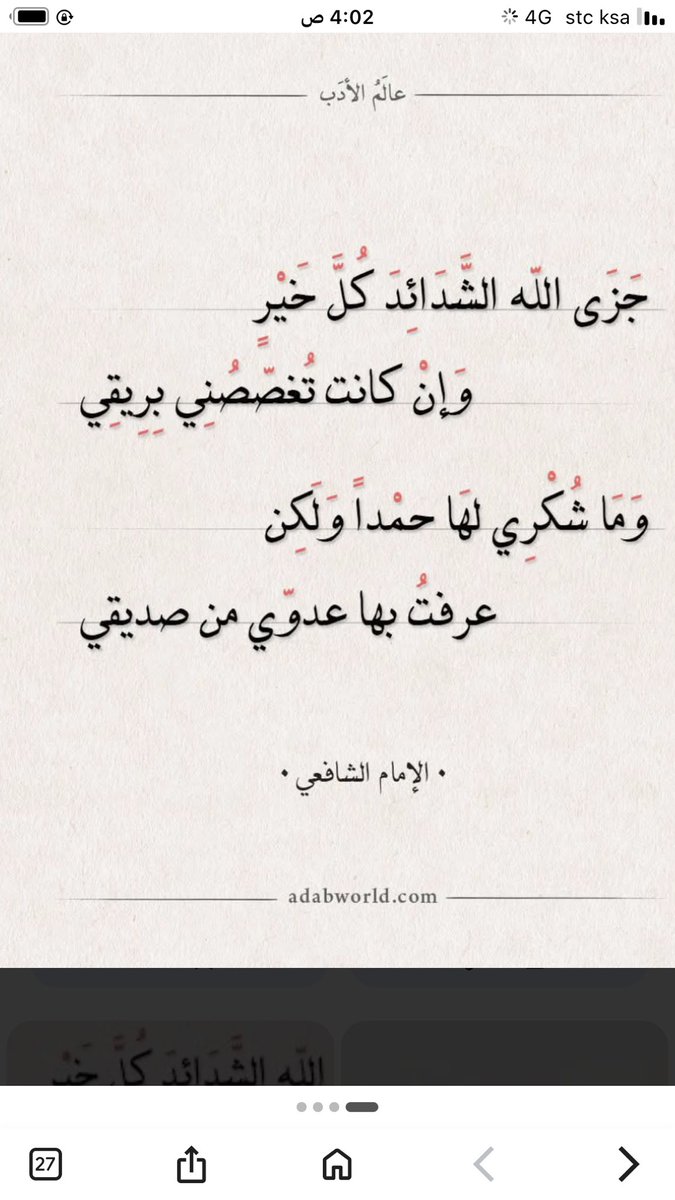 4:02 ص
4G stc ksa
عالَمُ الأدَب
جَزَى اللّه الشَّدَائِدَ كُلَّ خَيْرٍ
وَإنْ كانت تُغصّصُنِي بِرِيقِي
وَمَا شُكْرِي لهَا حمْداً وَلَكِن
عرفتُ بها عدوّي من صديقي
• الإمام الشافعي •
adabworld.com
اللّه الشَّدَائدَ كُلَّ خَيْر
27